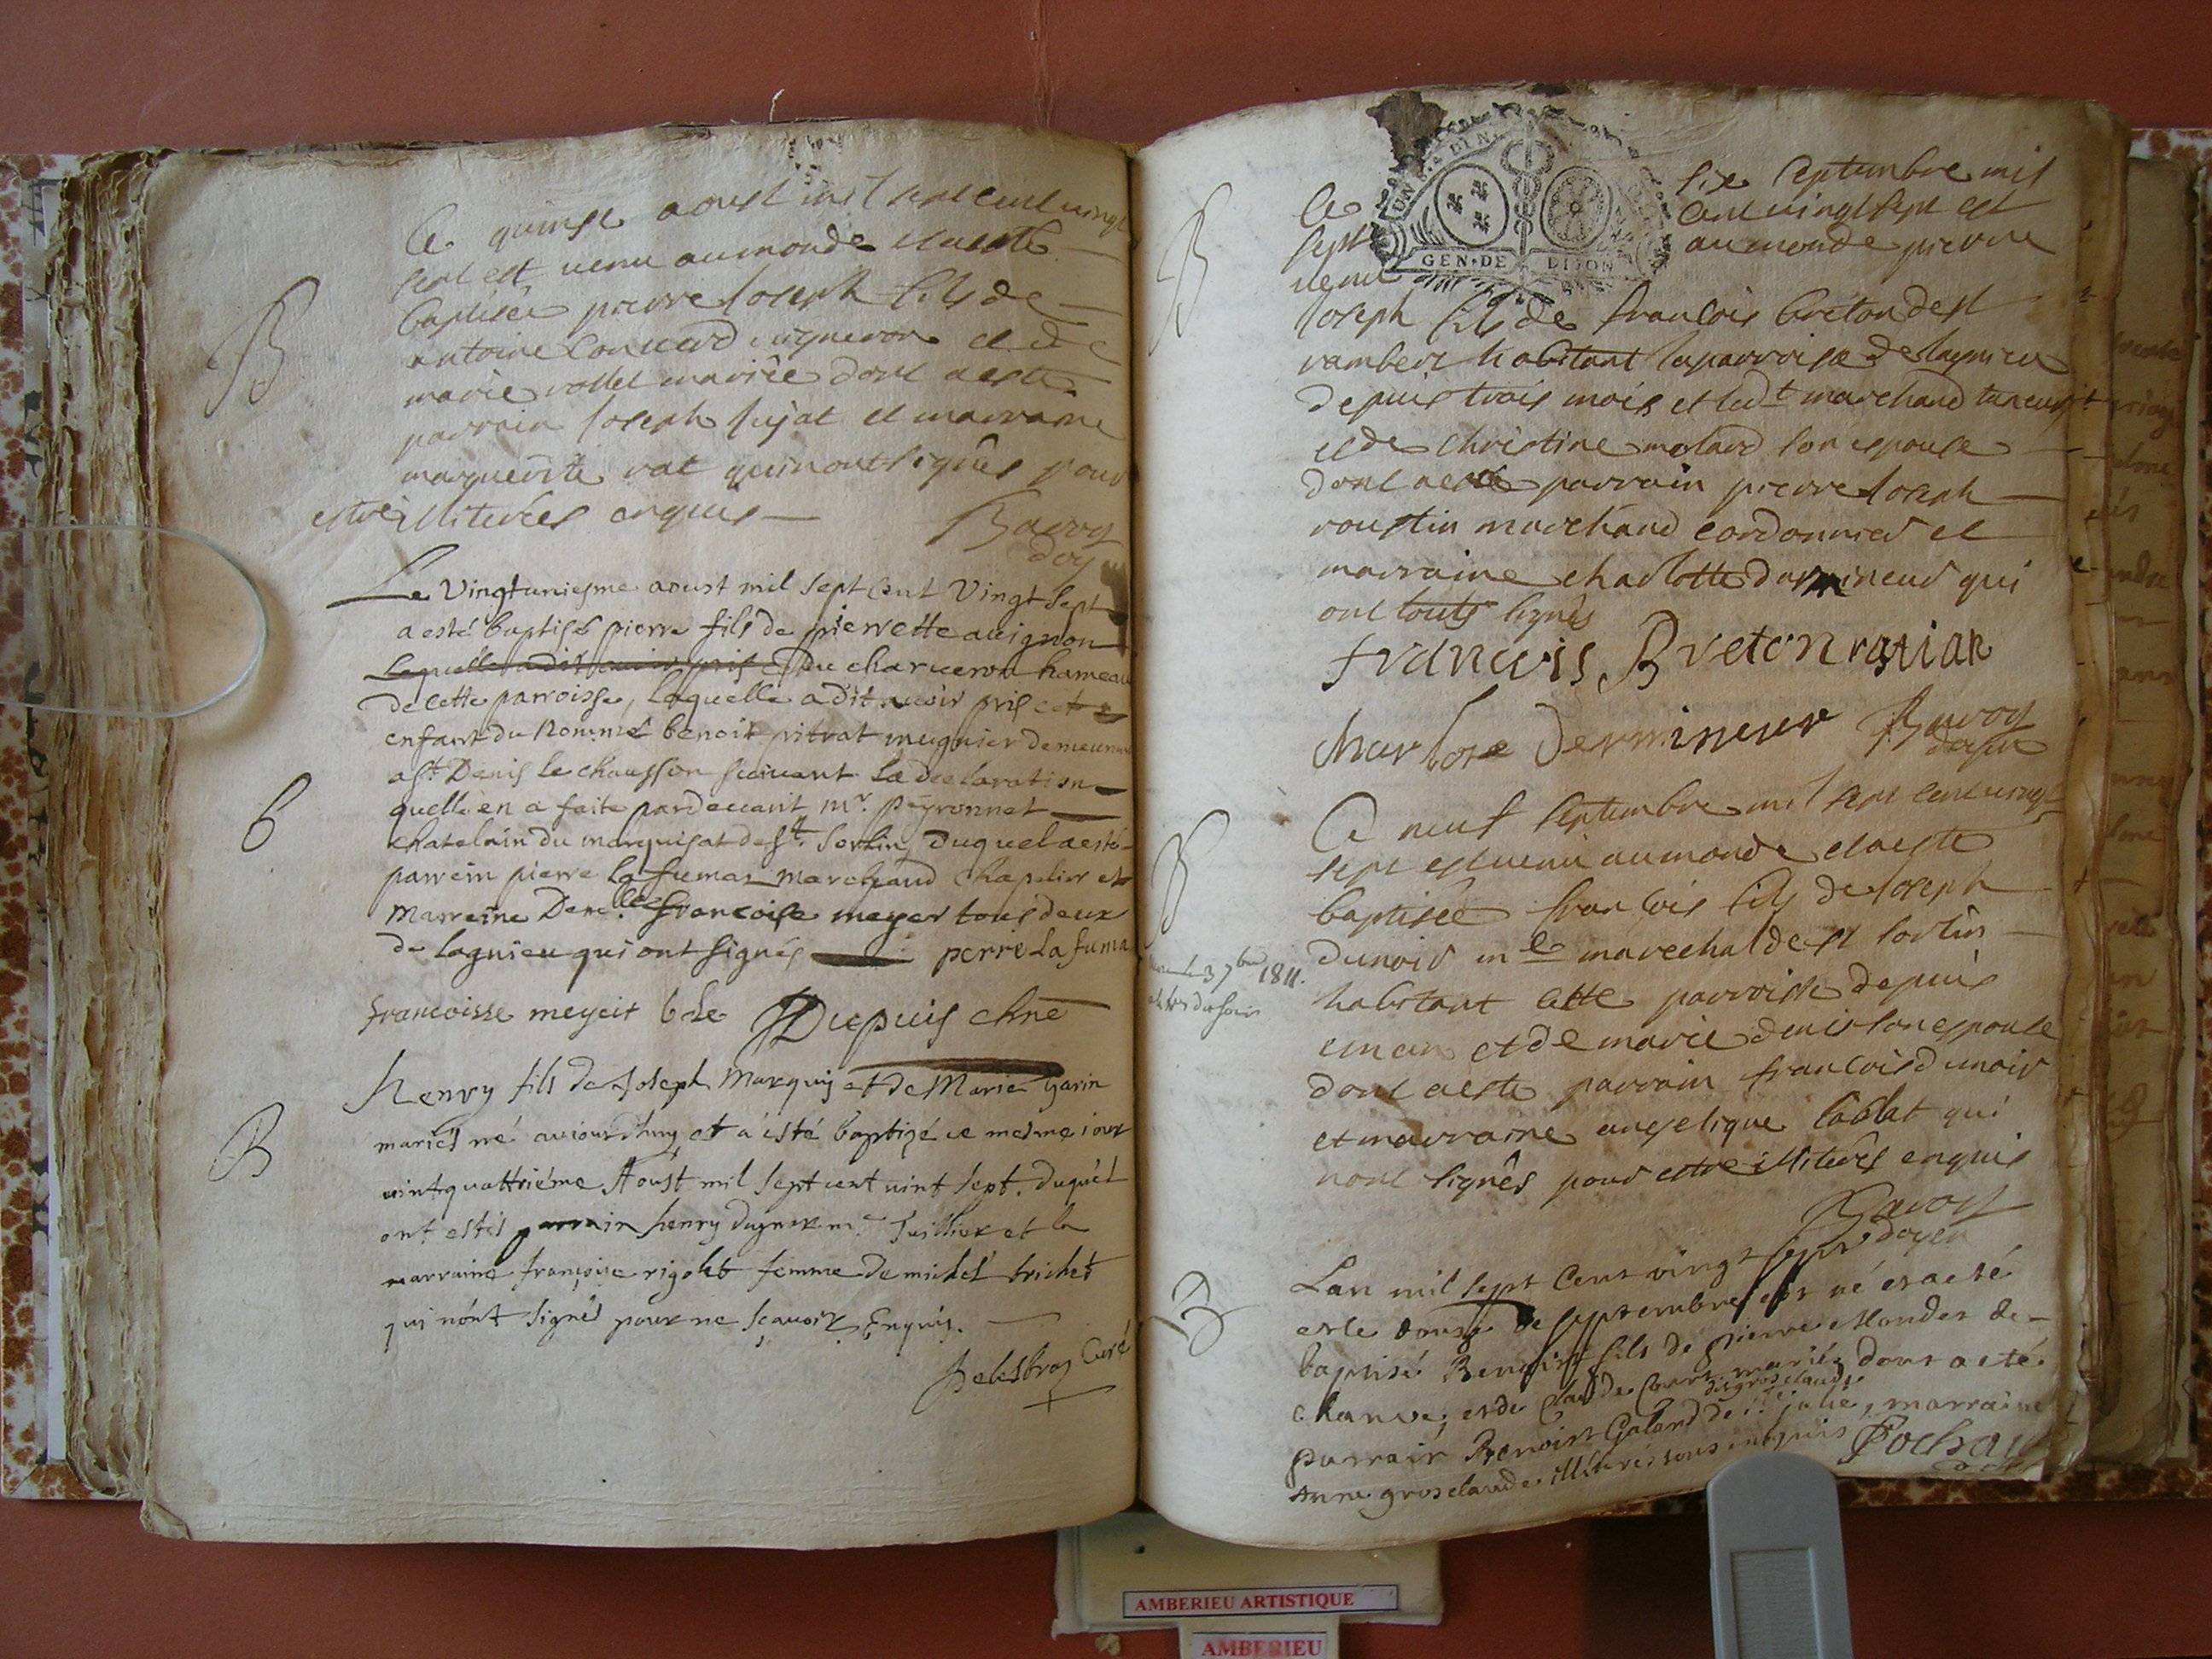 Ce quinse aoust mil sept cent vingt
sept est venu au monde et a esté
baptisée pierre Joseph fils de
antoine Convert vigneron et de
marie rollet mariée dont a esté
parrain Joseph et marraine
marguerite rat qui n'ont signés pour
estre illiterées enquis
Le Vingtuniesme aoust mil sept Cent Vingt Sept
a esté baptisé pierre fils de pierrette avignon
du charveron hameau
de cette parroisse, laquelle a dit avoir pris cet
enfant du Nommé benoit pitrat meugnier demeurant
a st. Denis le chausson suivant la declaration
quelle en a faite pardevant mr. peyronnet
chatelain du marquisat de st. Sorlin, Duquel a esté
parrein pierre la fumas marchand chapelier et
marreine Demlle francoise meyer tous deux
de lagnieu qui ont signés perre La fuma
francoisse meyeit Dupuis chne
Henry fils de Joseph Marquis et de Marie garin
mariés né aviourdhuy et a esté baptizé ce mesme iour
vintquattriéme Aoust mil sept cent vint sept. duquel
ont estés parrain henry dugner me Tuillier et la
marraine françoise rigolet femme de michel brichet
qui n'ont signés pour ne sçavoir Enquis.
Delesbros Curé
B
6
B
Le six septembre mil
sept cent vingt sept est
venu au monde pierre
GEN. DE DIJON
Joseph fils de francois breton de st
rambert habitant la parroisse de lagnieu
depuis trois mois et led.t marchand taneur
et de christine molard son espouse
dont a esté parrain pierre Joseph
roustin marchand cordonnier et
marraine charlotte dermineur qui
ont touts signés
francois Breton
charlote Dermineur
Ce neuf septembre mil sept cent vingt
sept est venu au monde et a esté
baptisée francois fils de Joseph
dunoir me marechal de st sorlin
habitant cette parroisse depuis
un an et de marie denis son espouse
dont a esté parrain francois dunoir
et marraine angelique qui
n'ont signés pour estre illiterés enquis
doyen
Lan mil sept Cent vingt sept
et le douze de septembre est né et a eté
baptisé Benoist fils de pierre de
et de Claude mariés dont a eté
parrain Benoist Galand de ste julie, marraine
Anne grosclaude illitérés tous enquis Pochay
B
B
7bre 1811.
du soir
B
AMBERIEU ARTISTIQUE
AMBERIEU